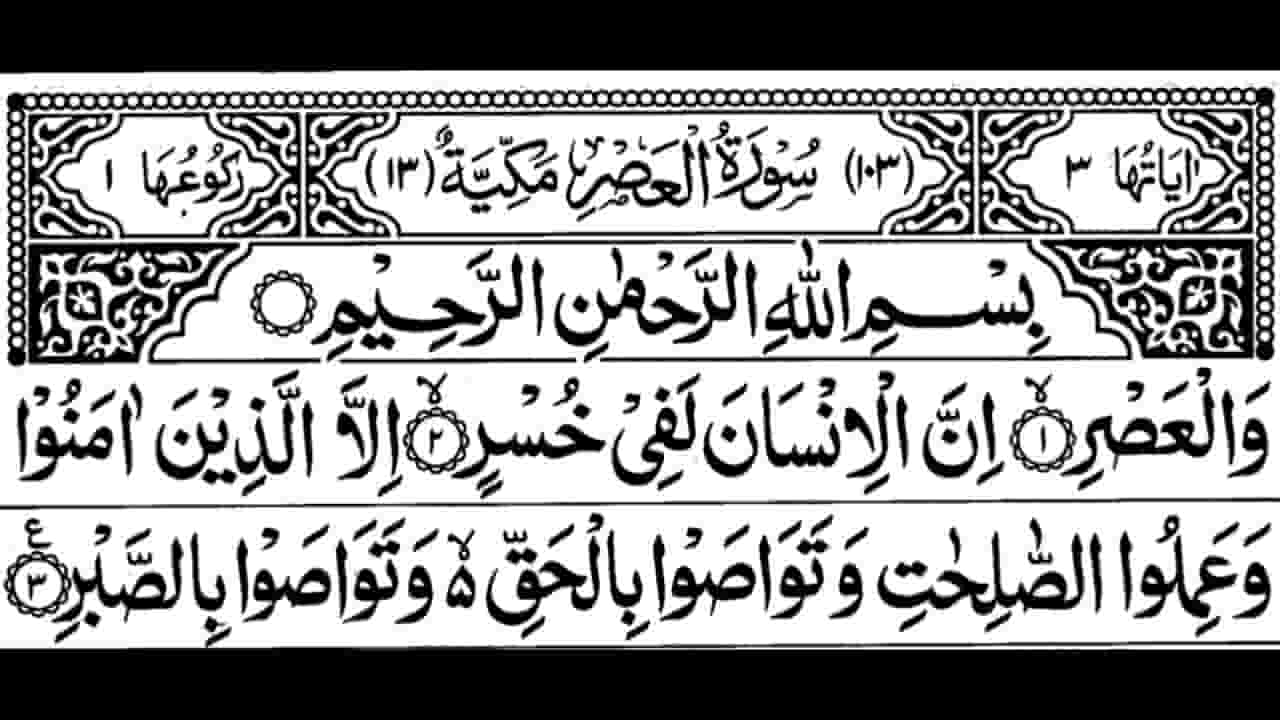 اٰیَاتُهَا ٣ (١٠٣) سُوْرَةُ الْعَصْرِ مَكِّيَّةٌ (١٣) رُكُوْعُهَا ١
بِسْمِ اللّٰهِ الرَّحْمٰنِ الرَّحِيْمِ
وَالْعَصْرِ ۙ﴿١﴾ اِنَّ الْاِنْسَانَ لَفِيْ خُسْرٍ ۙ﴿٢﴾ اِلَّا الَّذِيْنَ اٰمَنُوْا
وَعَمِلُوا الصّٰلِحٰتِ وَتَوَاصَوْا بِالْحَقِّ ۙ۵ وَتَوَاصَوْا بِالصَّبْرِ ﴿٣﴾ ع